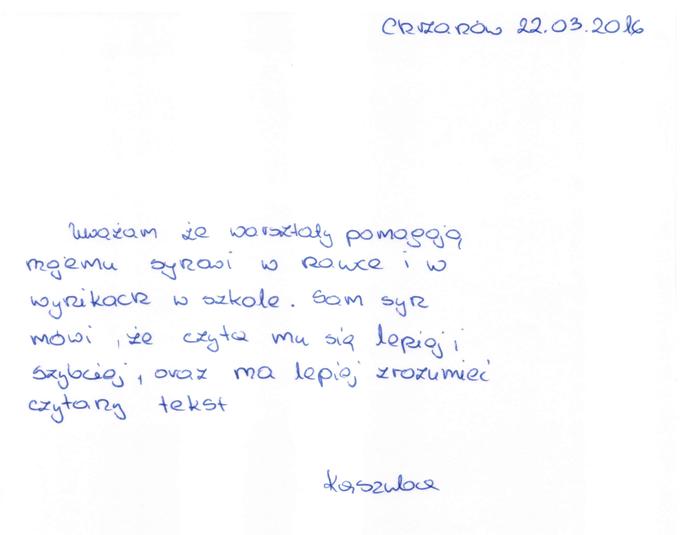 Chrzanów 22.03.2016
Uważam że warsztaty pomagają
mojemu synowi w nauce i w
wynikach w szkole. Sam syn
mówi, że czyta mu się lepiej i
szybciej, oraz ma lepiej zrozumieć
czytany tekst